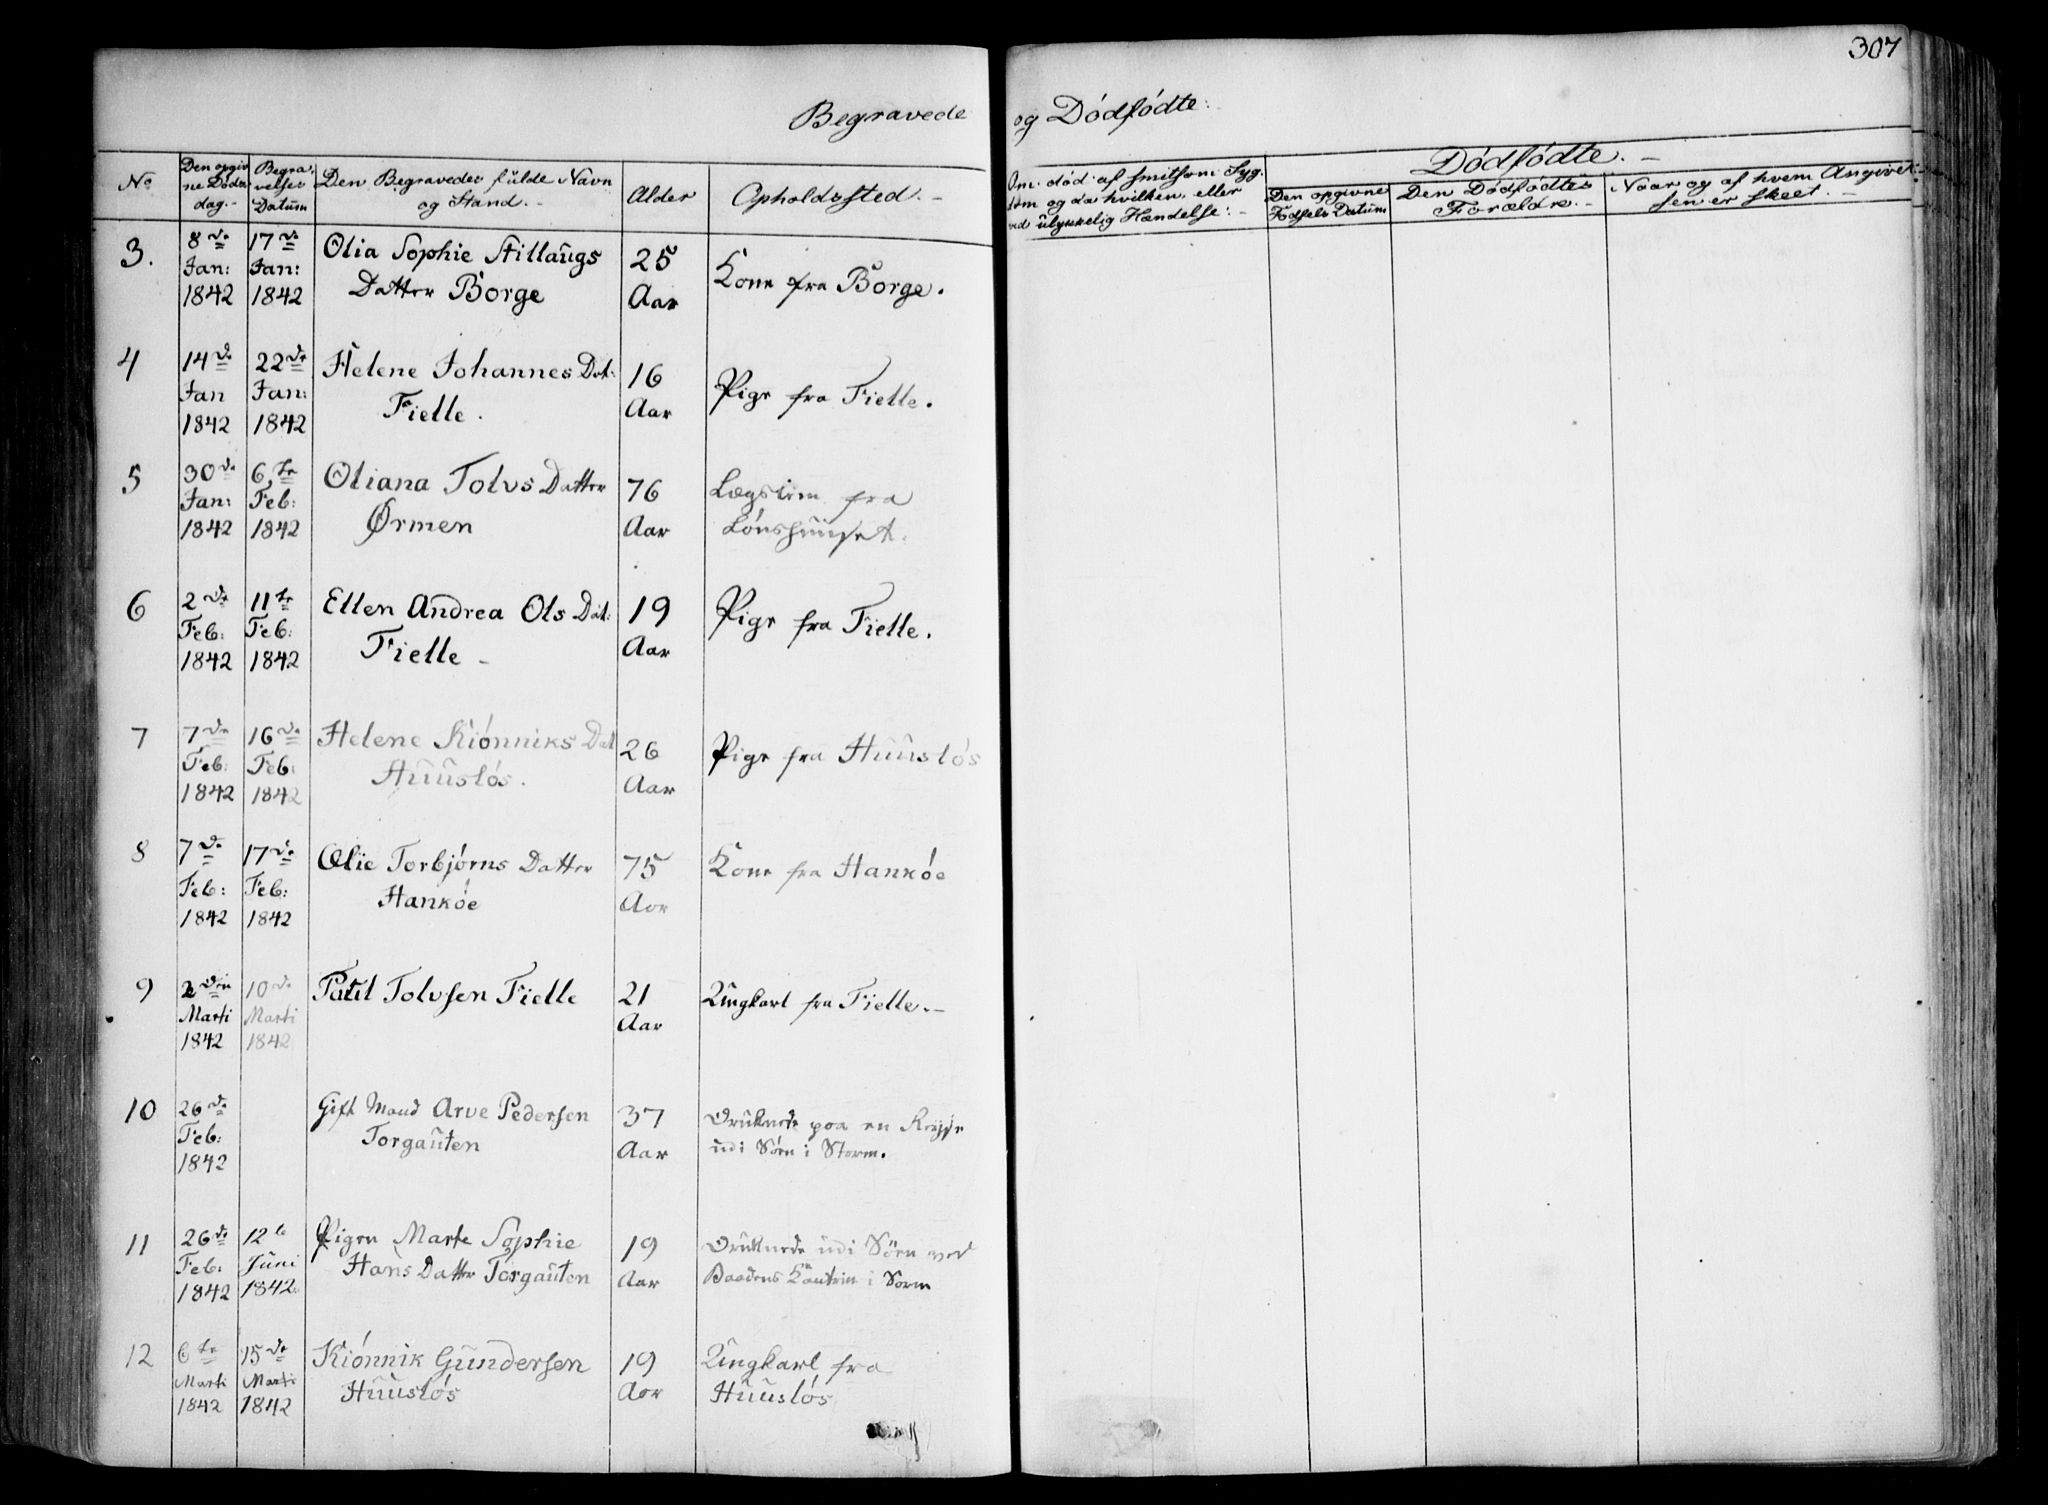 307
Begravede og Dödfödte:
No
Den opgivne Döds dag.-
Begravelses Datum
Den Begravedes fulde Navn og Stand.-
Alder
Opholdssted.-
Om død af smitsom Sygdom og da hvilken, eller ved ulykkelig Hændelse:-
Dödfödte.-
Den opgivne Födsels Datum
Den Dödfödtes Forældre.-
Naar og af hvem Angivelsen er skeet.-
3.
8de Jan: 1842
17de Jan: 1842
Olia Sophie Aillaugs
Datter Borge
25 Aar
Kone fra Borge.
4
14de Jan 1842
22de Jan: 1842
Helene Johannes Dat:
Fielle.
16 Aar
Pige fra Fielle.
5
30de Jan: 1842
6te Feb: 1842
Oliana Tolvs Datter
Ørmen
76 Aar
Lægslem fra
Lönshuuset.
6
2de Feb: 1842
11te Feb: 1842
Ellen Andrea Ols Dat:
Fielle -
19 Aar
Pige fra Fielle.
7
7de Feb: 1842
16de Feb: 1842
Helene Kiönniks Dat
Huuslös.
26 Aar
Pige fra Huuslös
8
7de Feb: 1842
17de Feb: 1842
Olie Torbjørns Datter
Hanköe
75 Aar
Kone fra Hanköe
9
2den Marti 1842
10de Marti 1842
Paul Tolvsen Fielle
21 Aar
Ungkarl fra Fielle.-
10
26de Feb: 1842
Gift Mand Arve Pedersen
Torgauten
37 Aar
Druknede paa en Rejse
udi Söen i Storm.
11
26de Feb: 1842
12te Juni 1842.
Pigen Marte Sophie
Hans Datter Torgauten
19 Aar
Druknede udi Söen ved
Baadens Kantrin i Sorm
12
6te Marti 1842
15de Marti 1842
Kiönnik Gundersen
Huuslös
19 Aar
Ungkarl fra
Huuslös